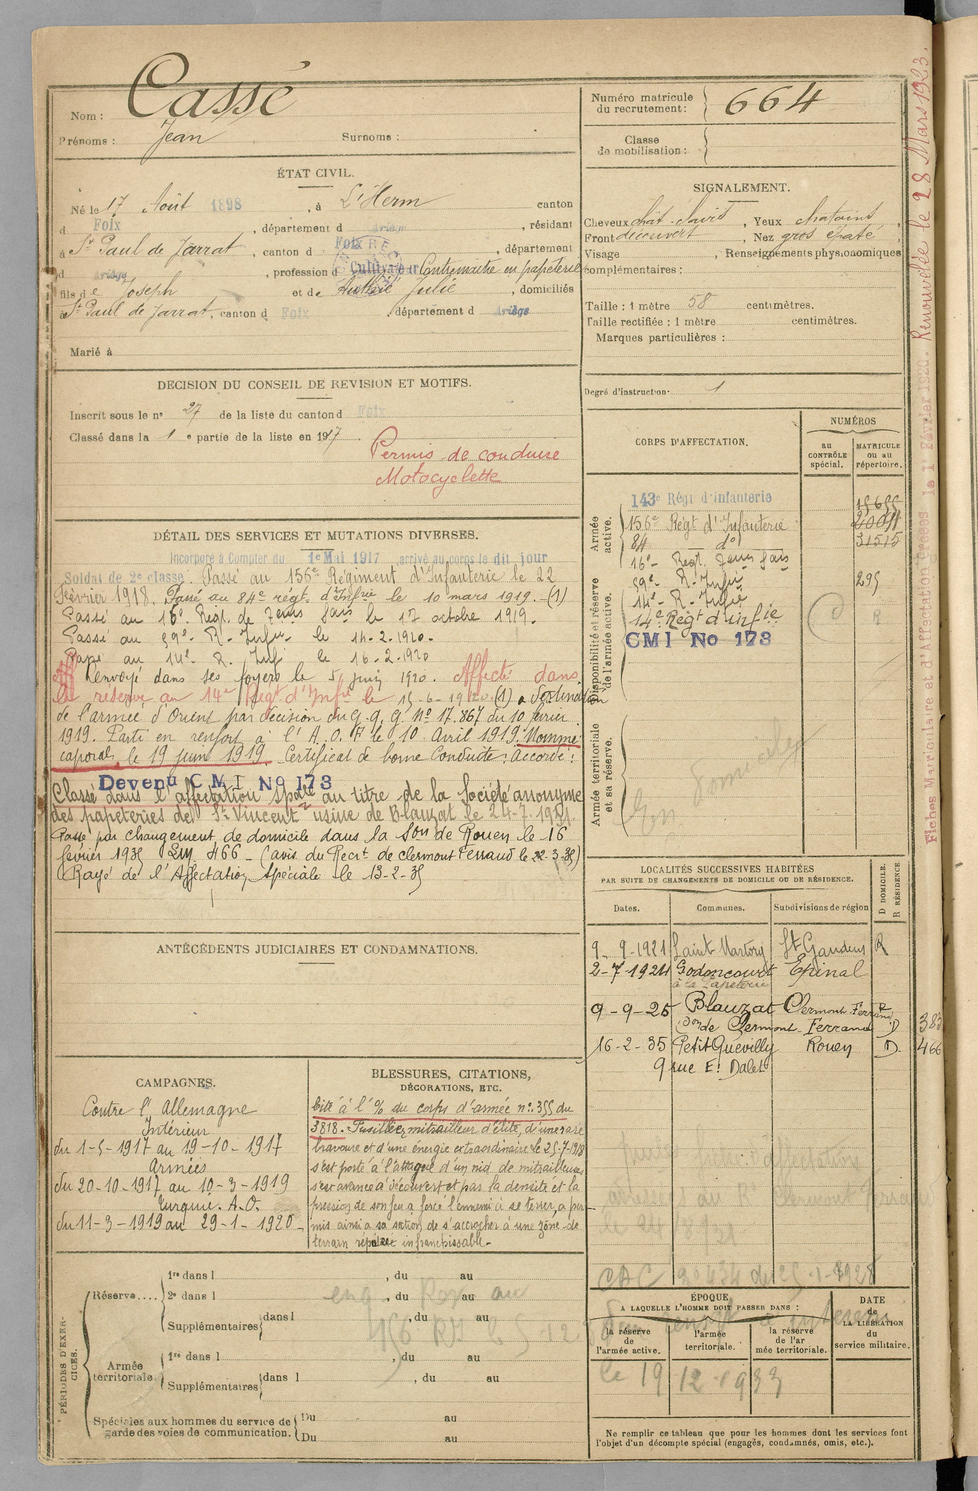 Nom : Cassé
Prénoms : Jean Surnoms :
ÉTAT CIVIL.
Né le 17 Août 1898, à L'Herm canton
d Foix, département d Ariège, résidant
à St Paul de Jarrat, canton d Foix, département
d Ariège, profession d Cultivateur Contremaitre en papeterie
fils de Joseph et de Julie, domiciliés
à St Paul de Jarrat, canton d Foix, département d Ariège
Marié à
DECISION DU CONSEIL DE REVISION ET MOTIFS.
Inscrit sous le n° 27 de la liste du canton d Foix
Classé dans la 1e partie de la liste en 1917.
Permis de conduire
Motocyclette
DÉTAIL DES SERVICES ET MUTATIONS DIVERSES.
Incorporé à Compter du 1er Mai 1917 arrivé au corps le dit jour
Soldat de 2e classe. Passé au 156e Régiment d'Infanterie le 22
Février 1918. Passé au 84e régt d'Infrie le 10 mars 1919. (1)
Passé au 16e Régt. de le 17 octobre 1919.
Passé au 59e R. Infrie le 14-2-1920.
au 14e R. Inf le 16-2-1920
Renvoyé dans ses foyers le 5 juin 1920. Affecté dans
la réserve au 14e Régt d'Infie le 15-6-1920 (1) à destination
de l'armée d'Orient par décision du G.Q.G. N° 17.867 du 10 février
1919. Parti en renfort à l'A.O. le 10 Avril 1919. Nommé
caporal le 19 juin 1919. Certificat de bonne Conduite : Accordé :
Devenu CMI No 173
Classé dans l'affectation spéale au titre de la Société anonyme
des papeteries de St Vincent usine de Blanzat le 24-7-
Passé par changement de domicile dans la Son de Rouen le 16
février 1935 466 - (avis du Rect de Clermont Ferrand le 22-3-35)
Rayé de l'Affectation Spéciale le 13-2-35
ANTÉCÉDENTS JUDICIAIRES ET CONDAMNATIONS.
CAMPAGNES.
Contre l'Allemagne
Intérieur
du 1-5-1917 au 19-10-1917
Armées
du 20-10-1917 au 10-3-1919
Turquie. A.O.
du 11-3-1919 au 29-1-1920
BLESSURES, CITATIONS,
DÉCORATIONS, ETC.
Cité à l'O/ du corps d'armée n° 355 du
3818. Fusillier mitrailleur d'élite, d'une rare
bravoure et d'une énergie extraordinaire. Le 25-7-1918
s'est porté à l'attaque d'un nid de mitrailleuses
s'est avancé à découvert et par la densité et la
précision de son feu a forcé l'ennemi à se terrer, a per-
mis ainsi à sa section de s'accrocher à une zône de
terrain infranchissable.
PÉRIODES D'EXERCICES.
Réserve.... 1re dans l , du au
2e dans l , du au
Supplémentaires dans l , du au
Armée territoriale 1re dans l , du au
Supplémentaires dans l , du au
Spéciales aux hommes du service de Du au
garde des voies de communication. Du au
Numéro matricule
du recrutement : 664
Classe
de mobilisation :
SIGNALEMENT.
Cheveux chat. clairs, Yeux
Front découvert, Nez gros épaté,
Visage , Renseignements physionomiques
complémentaires :
Taille : 1 mètre 58 centimètres.
Taille rectifiée : 1 mètre centimètres.
Marques particulières :
Degré d'instruction : 1
CORPS D'AFFECTATION.
NUMÉROS
au
CONTRÔLE
spécial.
MATRICULE
ou au
répertoire.
Armée
active.
143e Régt d'Infanterie 15655
156e Régt d'Infanterie
84 do 31515
16e Régt.
Disponibilité et réserve
de l'armée active.
59e R. Infie 295
14e R. Infie
14e Régt d'infie
CMI No 173
Armée territoriale
et sa réserve.
domicile
LOCALITÉS SUCCESSIVES HABITÉES
PAR SUITE DE CHANGEMENTS DE DOMICILE OU DE RÉSIDENCE.
Dates. Communes. Subdivisions de région D DOMICILE. R RÉSIDENCE
9-9-1921 Saint Martory St Gaudens R
2-7-1924 Godoncourt Epinal
à la Papeterie
9-9-25 Blanzat Clermont Ferrand R
Son de Clermont-Ferrand D 383
16-2-35 Petit Quevilly Rouen D. 466
9 rue E. Dalet
CAC
ÉPOQUE
A LAQUELLE L'HOMME DOIT PASSER DANS :
la réserve
de
l'armée active.
l'armée
territoriale.
la réserve
de l'ar
mée territoriale.
DATE
de
LA LIBÉRATION
du
service militaire.
le 19 12 1933
Ne remplir ce tableau que pour les hommes dont les services font
l'objet d'un décompte spécial (engagés, condamnés, omis, etc.).
Fiches Matriculaire et d'Affectation Créées le 1 Février 1920. Renouvelée le 28 Mars 1923.